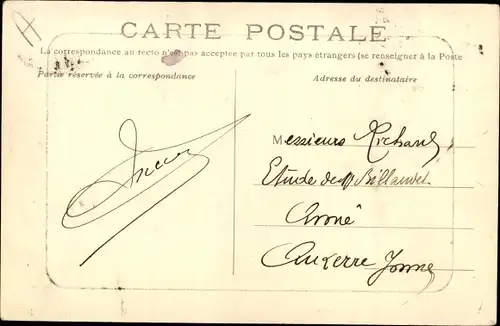 CARTE POSTALE
La correspondance au recto n'est pas acceptée par tous les pays étrangers (se renseigner à la Poste
Partie réservée à la correspondance
Adresse du destinataire
Messieurs Richard
Etude de Me Billaudel
Avoué
Auxerre Yonne